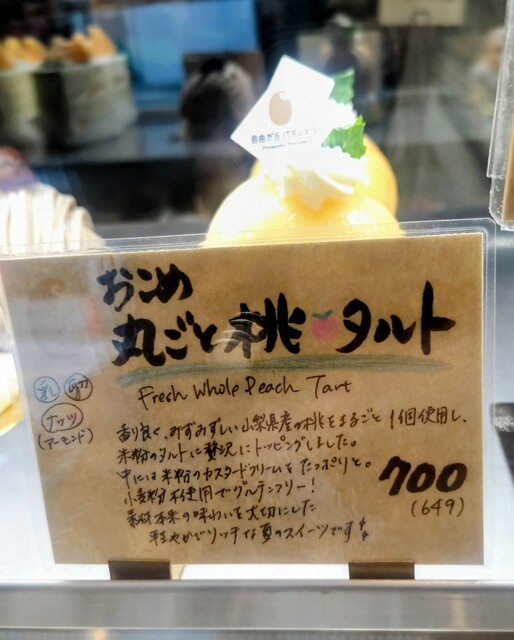 自由が丘
おこめ
丸ごと桃タルト
Fresh Whole Peach Tart
乳 卵
ナッツ
(アーモンド)
香り良く、みずみずしい山梨県産の桃をまるごと1個使用し、
米粉のタルトに贅沢にトッピングしました。
中には米粉のカスタードクリームをたっぷりと。
小麦粉不使用でグルテンフリー!
素材本来の味わいを大切にした
軽やかでリッチな夏のスイーツです
700
(649)